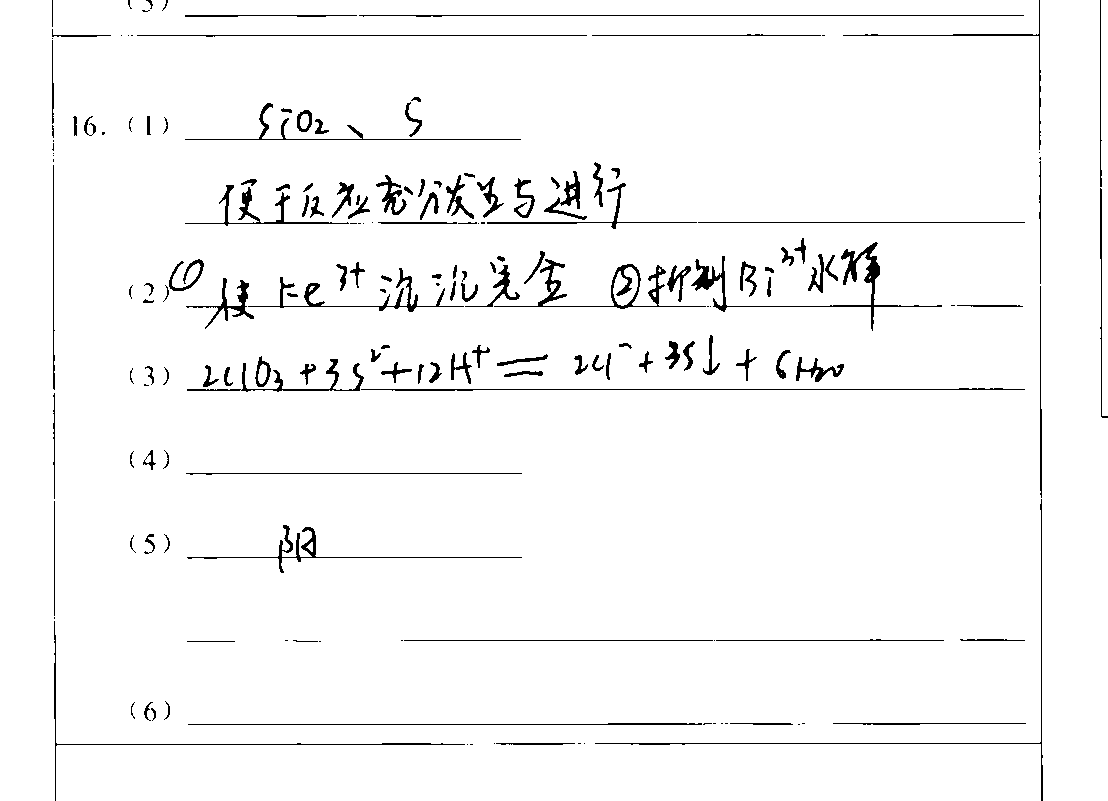 (3)
16. (1) SiO₂、S
便于反应充分发生与进行
(2) ①使Fe³⁺沉沉完全 ②抑制Bi³⁺水解
(3) 2ClO₃ + 3S²⁻ + 12H⁺ = 2Cl⁻ + 3S↓ + 6H₂O
(4)
(5) 阳
(6)